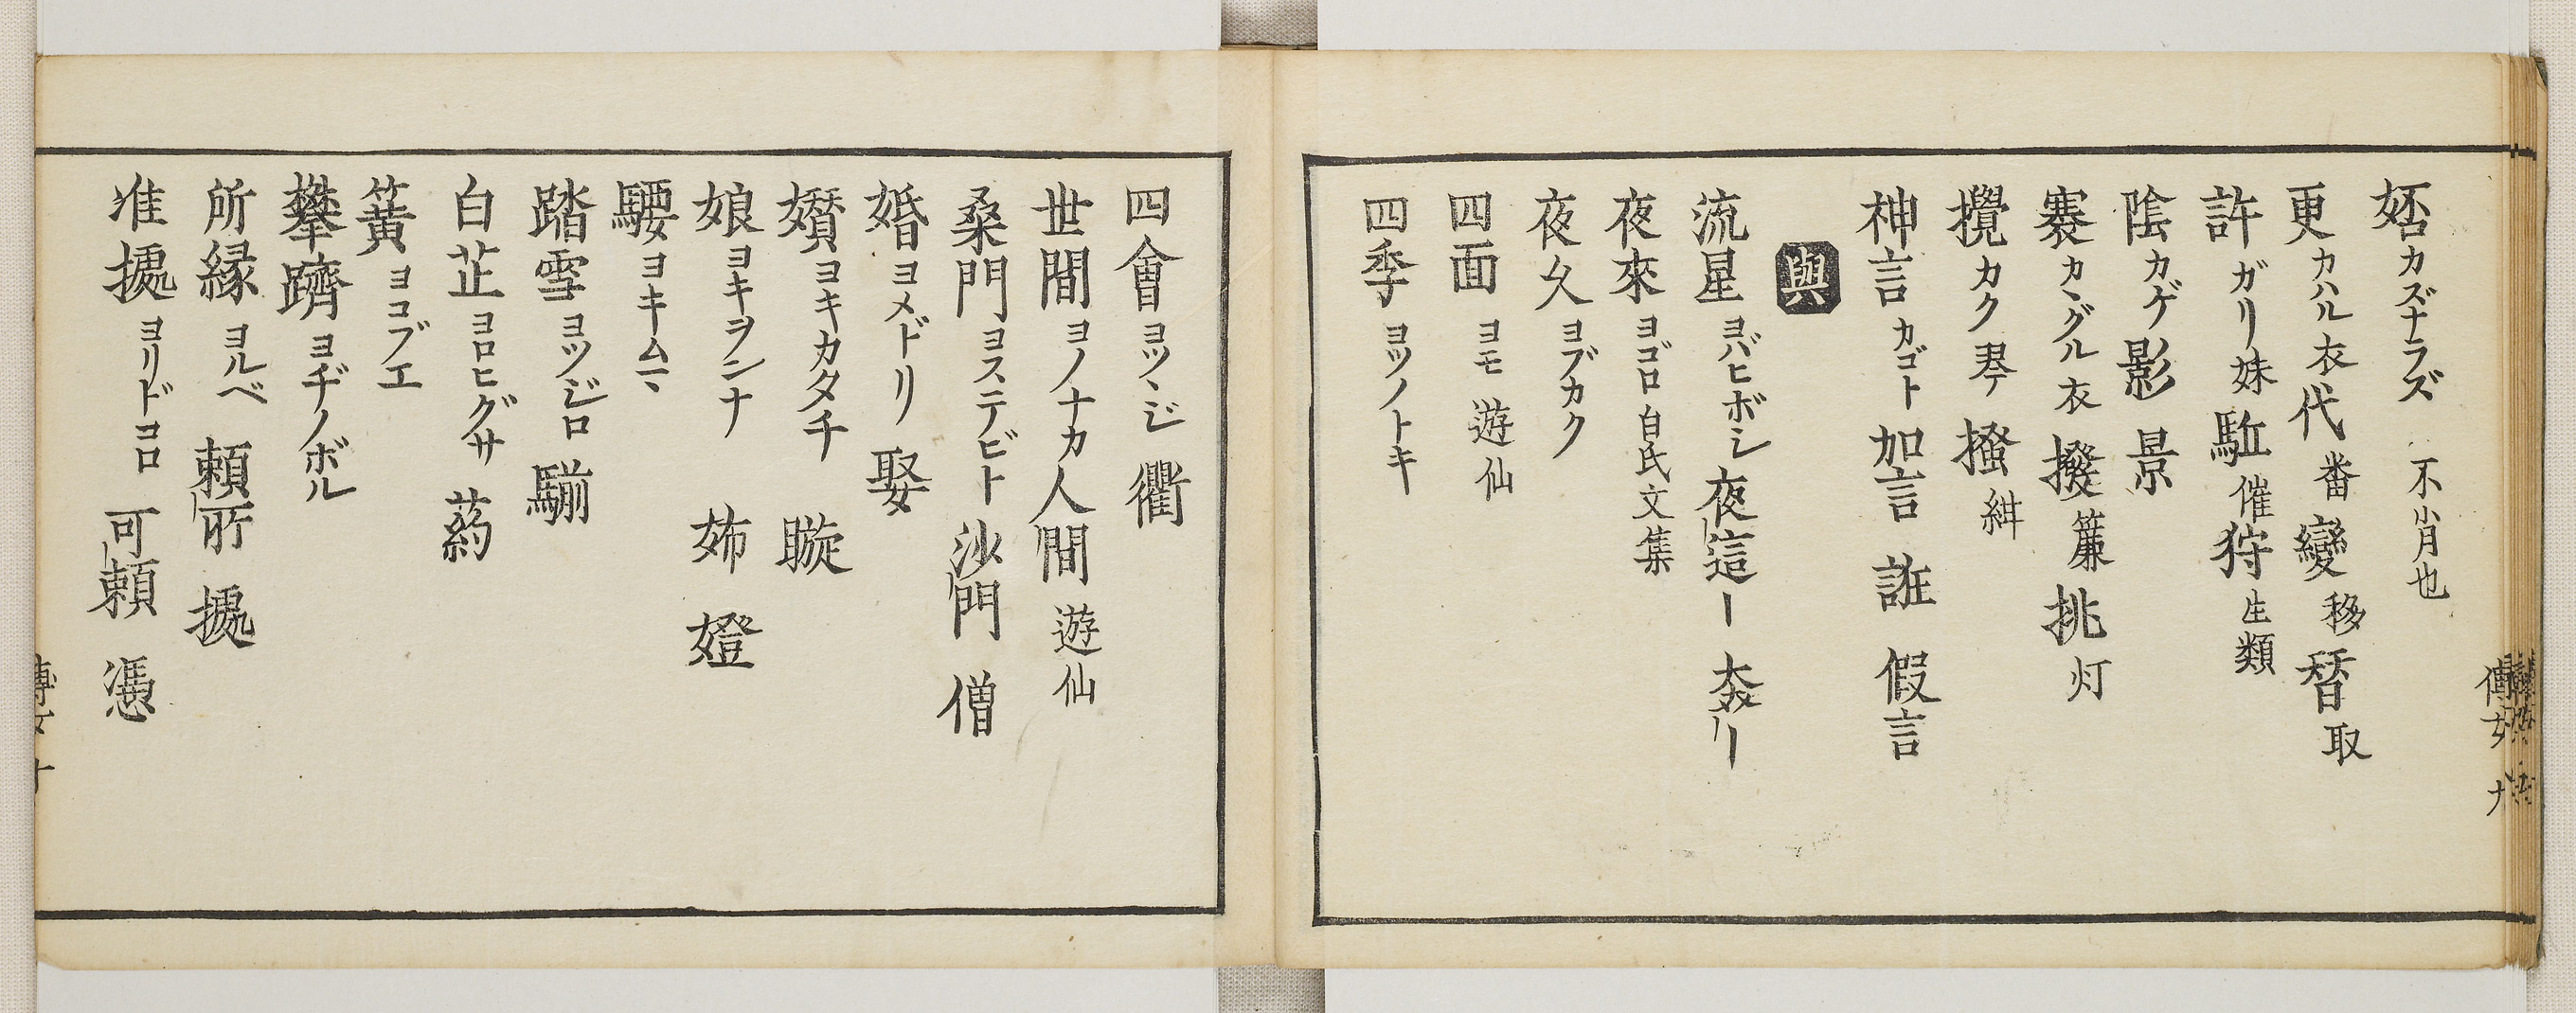 娝カズナラズ 不肖也
更カハル衣代番變移替取
許ガリ妹駈催狩生類
陰カゲ影景
褰カヽグル衣撥簾挑灯
攪カク琴掻紲
神言カゴト加言誑假言
與
流星ヨバヒボシ夜這ー
夜來ヨゴロ白氏文集
夜久ヨブカク
四面ヨモ遊仙
四季ヨツノトキ
四會ヨツヽジ衢
世間ヨノナカ人間遊仙
桑門ヨステビト沙門僧
婚ヨメドリ娶
孏ヨキカタチ
娘ヨキヲンナ姉嬁
騕ヨキムマ
踏雪ヨツジロ騚
白芷ヨロヒグサ葯
簧ヨコブエ
攀躋ヨヂノボル
所縁ヨルベ頼所據
准據ヨリドコロ可頼憑